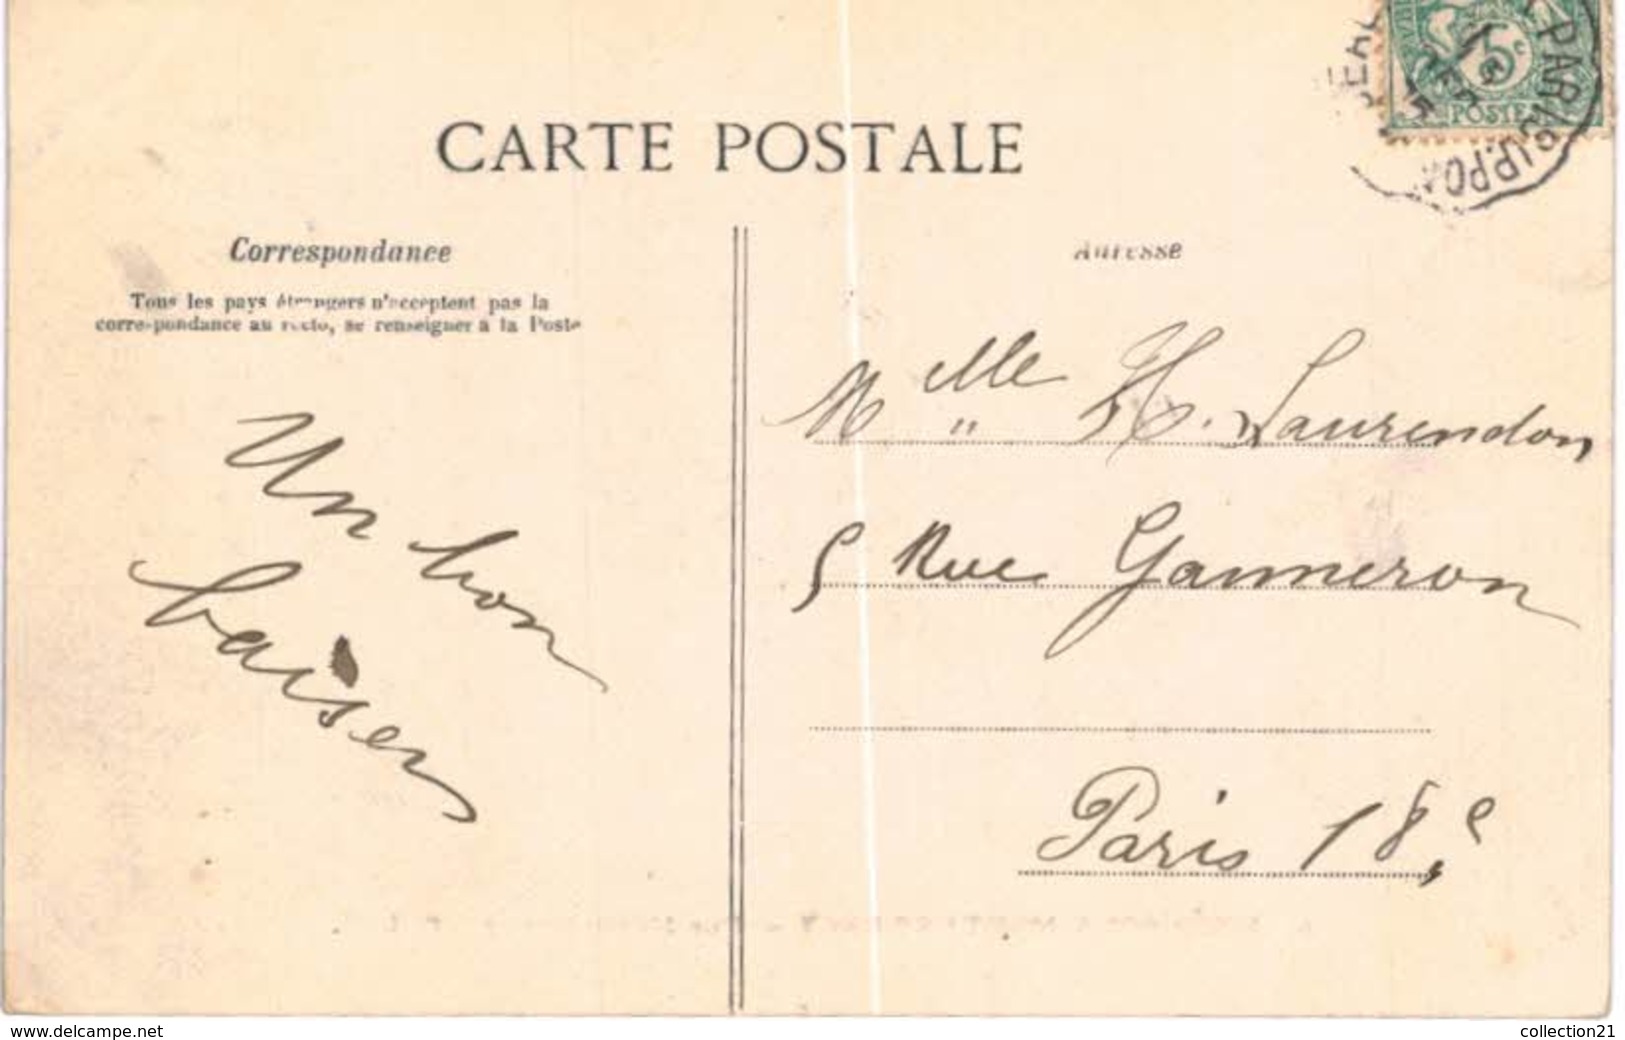 CARTE POSTALE
5c
POSTES
Correspondance
Tous les pays étrangers n'acceptent pas la
correspondance au recto, se renseigner à la Poste
Un bon
baiser
Adresse
Melle H. Laurendon
5 Rue Ganneron
Paris 18e
www.delcampe.net
collection21